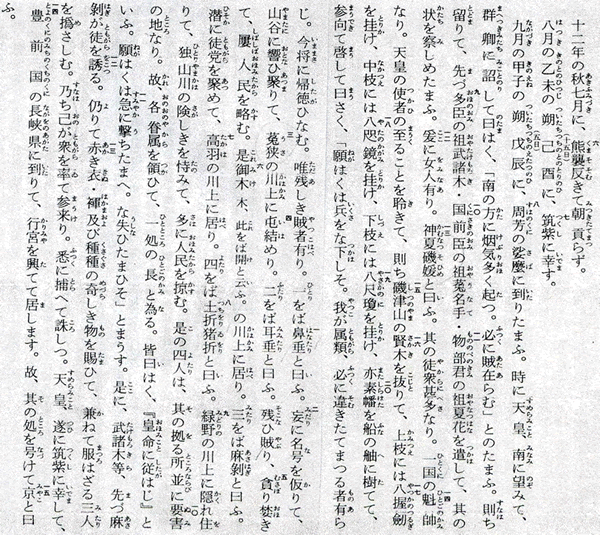 十二年の秋七月に、熊襲反きて朝貢らず。
八月の乙未の朔己酉に、筑紫に幸す。
九月の甲子の朔戊辰に、周芳の娑麼に到りたまふ。時に天皇、南に望みて、
群卿に詔して曰はく、「南の方に烟気多く起つ。必に賊在らむ」とのたまふ。則ち
留りて、先づ多臣の祖武諸木・国前臣の祖菟名手・物部君の祖夏花を遣して、其の
状を察しめたまふ。爰に女人有り。神夏磯媛と曰ふ。其の徒衆甚多なり。一国の魁帥
なり。天皇の使者の至ることを聆きて、則ち磯津山の賢木を抜りて、上枝には八握剣
を挂け、中枝には八咫鏡を挂け、下枝には八尺瓊を挂け、亦素幡を船の舳に樹てて、
参向て啓して曰さく、「願はくは兵をな下しそ。我が属類、必に違きたてまつる者有ら
じ。今将に帰徳ひなむ。唯残しき賊者有り。一をば鼻垂と曰ふ。妄に名号を仮りて、
山谷に響ひ聚りて、菟狭の川上に屯結めり。二をば耳垂と曰ふ。残ひ賊り、貪り婪き
て、屡人民を略む。是御木木、此をば開と云ふ。の川上に居り。三をば麻剥と曰ふ。
潜に徒党を聚めて、高羽の川上に居り。四をば土折猪折と曰ふ。緑野の川上に隠れ住
りて、独山川の険しきを恃みて、多に人民を掠む。是の四人は、其の拠る所並に要害
の地なり。故、各眷属を領ひて、一処の長と為る。皆曰はく、『皇命に従はじ』と
いふ。願はくは急に撃ちたまへ。な失ひたまひそ」とまうす。是に、武諸木等、先づ麻
剥が徒を誘る。仍りて赤き衣・褌及び種種の奇しき物を賜ひて、兼ねて服はざる三人
を撝さしむ。乃ち己が衆を率て参来り。悉に捕へて誅しつ。天皇、遂に筑紫に幸して、
豊前国の長峡県に到りて、行宮を興てて居します。故、其の処を号けて京と曰